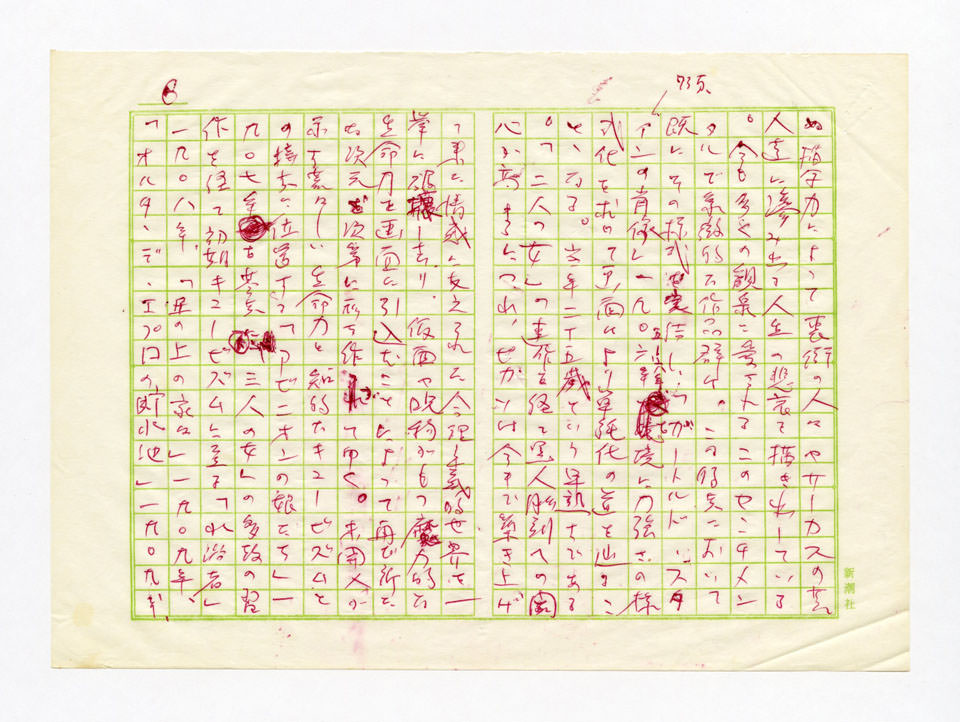 6
73頁
ぬ描写力によって裏街の人々やサーカスの芸
人達に滲み出る人生の悲哀を描き出している
。今も多くの観衆に愛されるこのセンチメン
タルで象徴的な作品群は、この時点において
既にその様式を完結し、「ガートルド・スタ
アンの肖像」一九〇六年を境に力強さの様
式化を求めて画面はより単純化の道を辿るこ
とになる。当年二十五歳という早熟さである
。「二人の女」の連作を経て黒人彫刻への関
心が高まるにつれ、ピカソは今まで築き上げ
て来た情感に支えられた合理主義的世界を一
挙に破壊し去り、仮面や呪物がもつ魔力的な
生命力を画面に引込むことによって再び新た
な次元を次第に形を作って中く。未開人が
示す荒々しい生命力と知的なキュービズムと
の接点に位置する「アビニオンの娘たち」一
九〇七年 三人の女」の多数の習
作を経て初期キュービズムに至る「水浴者」
一九〇八年、「丘の上の家々」一九〇九年、
「オルタ・デ・エブロの貯水池」一九〇九年
新潮社